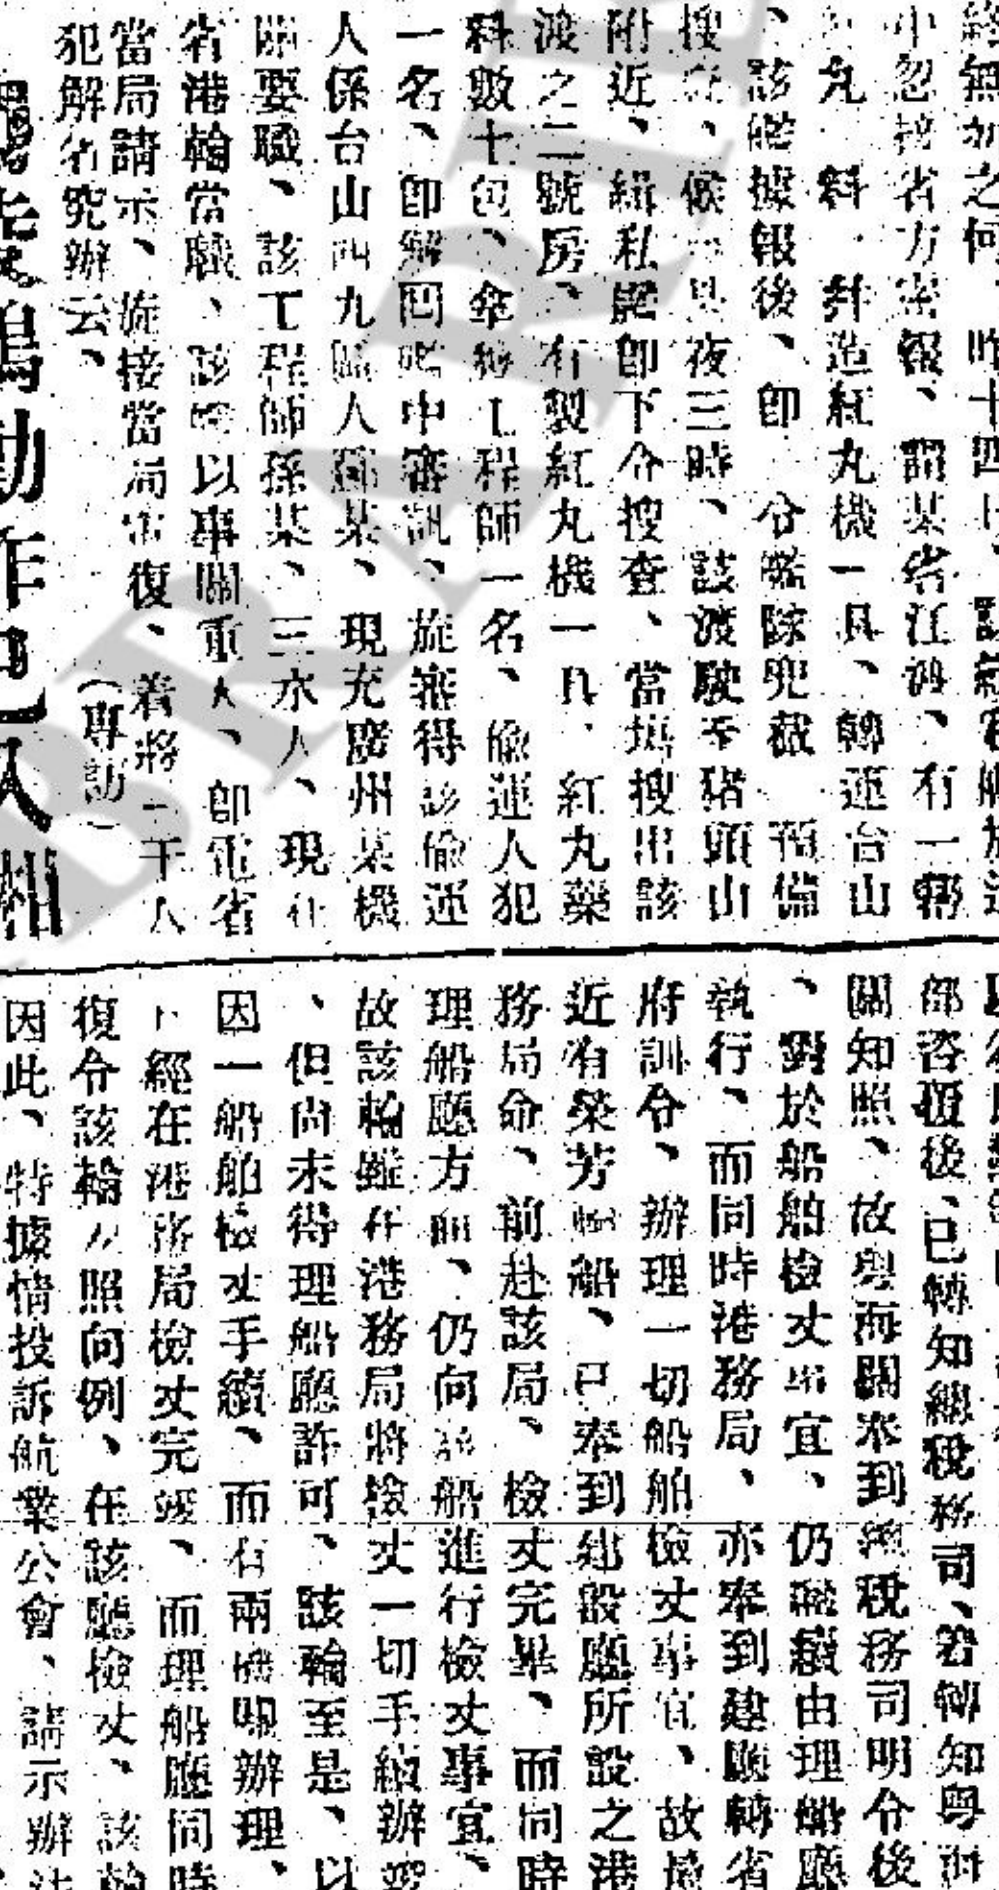 終無如之何、昨十四日、
中忽接省方密報、謂某省江渡、有一轉
丸料、幷造紅丸機一具、轉運台山
、該艦據報後、即分艦隊兜截預備
搜、候是夜三時、該渡駛至猪頭山
附近、緝私艦即下令搜查、當塲搜出該
渡之二號房、有製紅丸機一具、紅丸藥
料數十包、拿獲工程師一名、偷運人犯
一名、即解回艦中審訊、旋審得該偷運
人係台山四九區人孫某、現充廣州某機
關要職、該工程師孫某、三水人、現在
省港輪當職、該艦以事關重大、即電省
當局請示、旋接當局電復、着將一干人
犯解省究辦云、（專訪）
動作也
部咨復後、已轉知總稅務司、着轉知粤海
關知照、故粤海關奉到總稅務司明令後
、對於船舶檢丈事宜、仍繼續由理船廳
執行、而同時港務局、亦奉到建廳轉省
府訓令、辦理一切船舶檢丈事宜、故最
近有榮芳輪船、已奉到建設廳所設之港
務局命、前赴該局、檢丈完畢、而同時
理船廳方面、仍向該船進行檢丈事宜、
故該輪雖在港務局將檢丈一切手續辦妥
、但尚未得理船廳許可、該輪至是、以
因一船舶檢丈手續、而有兩機關辦理、
上經在港務局檢丈完竣、而理船廳同時
復令該輪照向例、在該廳檢丈、該輪
因此、特據情投訴航業公會、請示辦法